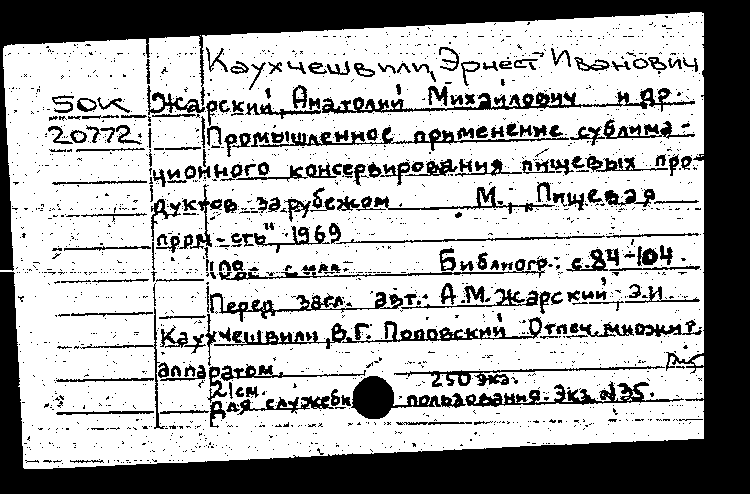 Каухчешвили, Эрнест Иванович
50К Жарский, Анатолий Михайлович и др.
20772. Промышленное применение сублима-
ционного консервирования пищевых про-
дуктов за рубежом. М., "Пищевая
пром-сть", 1969.
108с. с илл. Библиогр.: с.84-104.
Перед загл. авт.: А.М. Жарский, Э.И.
Каухчешвили, В.Г. Поповский Отпеч. множит.
аппаратом.
21см. 250 экз.
Для служебн пользования. Экз. №35.